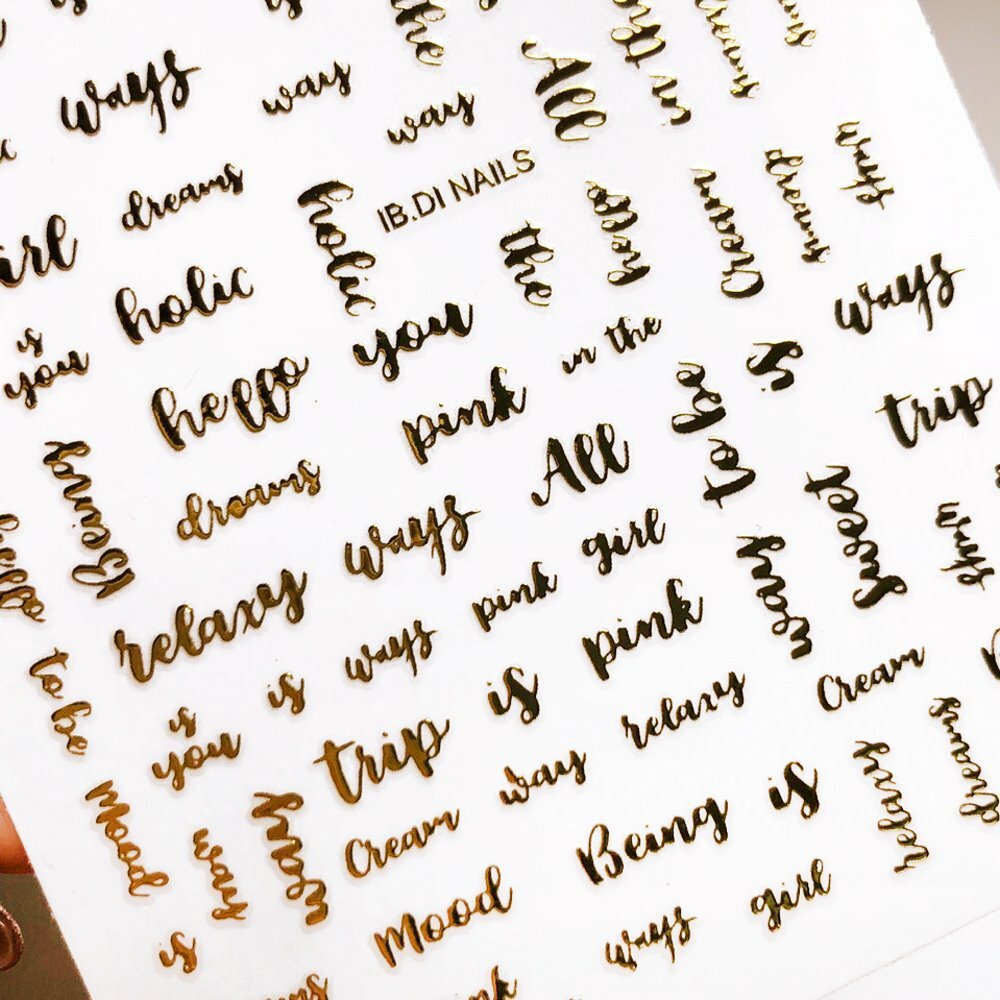 the
ways
way
way
All
in the
dreams
dreams
IB.DI NAILS
holic
the
hello
Cream
dreams
ways
holic
is
you
hello
you
pink
in the
to be
is
ways
trip
Being
dreams
All
sweet
ways
hello
relaxy
ways
pink
girl
way
to be
is
you
is
ways
trip
is
pink
relaxy
Cream
dreams
Mood
way
way
Cream
way
Being
is
relaxy
is
Mood
ways
girl